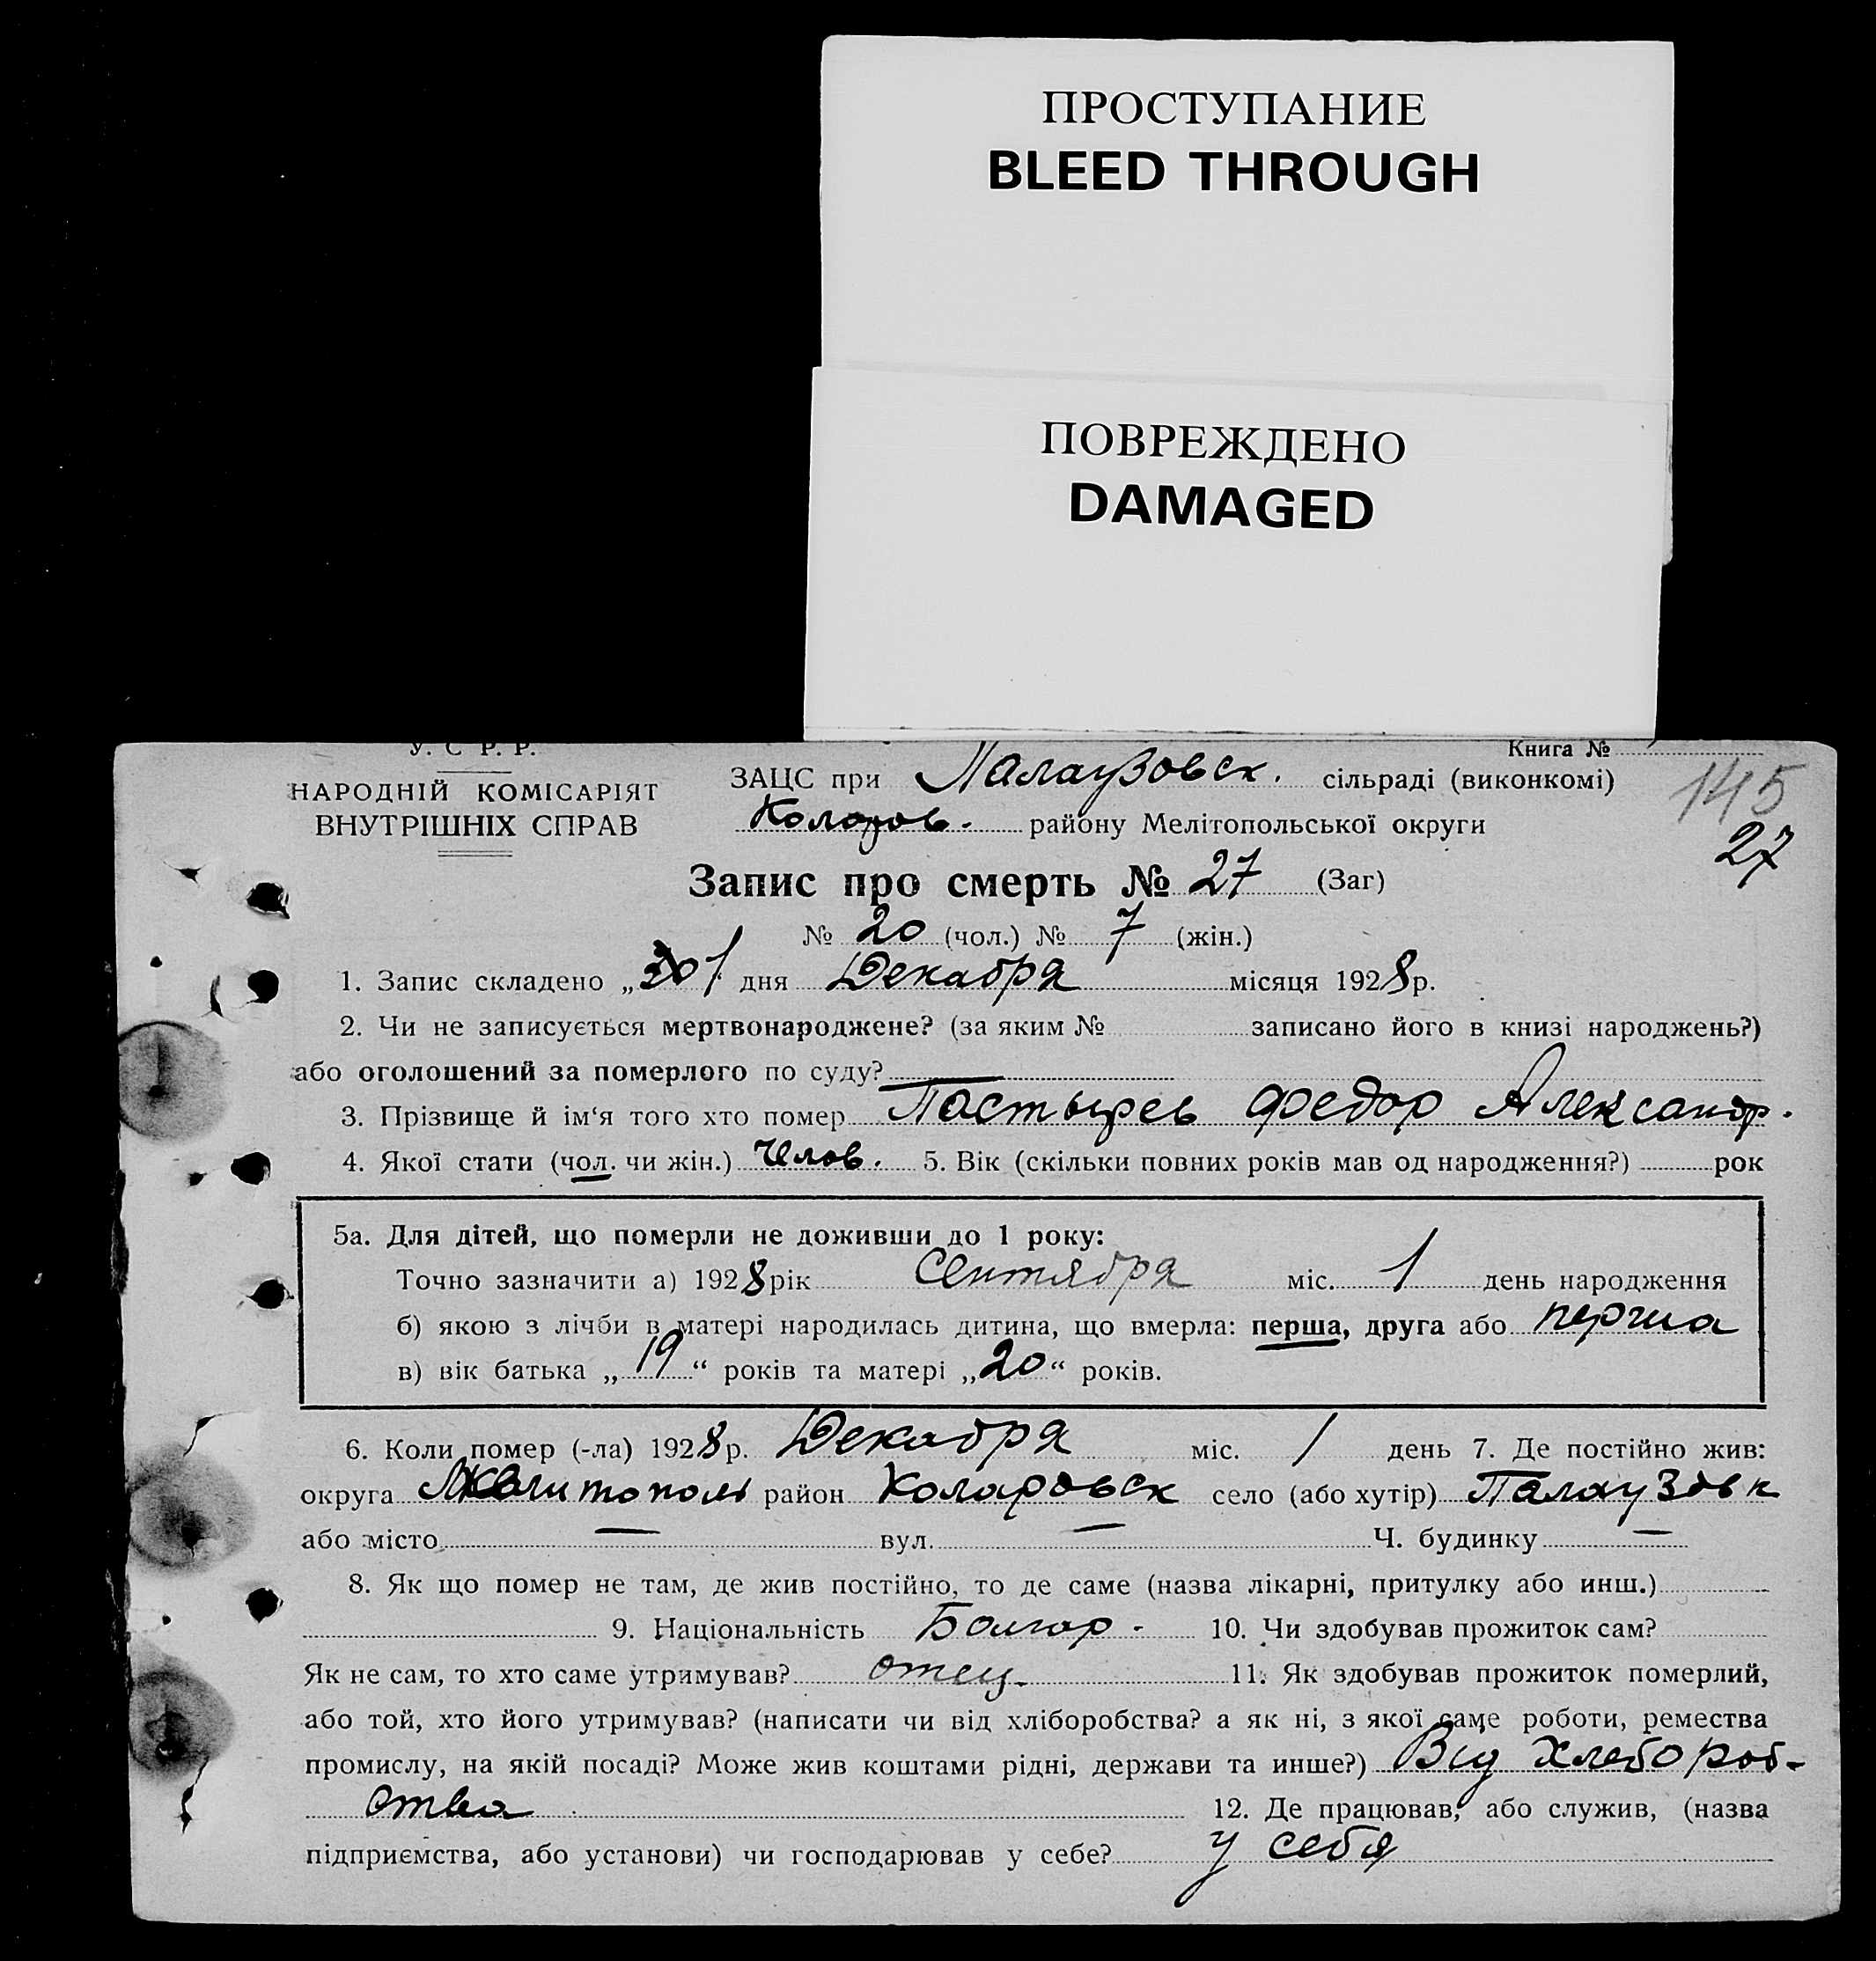 ПРОСТУПАНИЕ
BLEED THROUGH
ПОВРЕЖДЕНО
DAMAGED
У. С. Р. Р.
Книга №
НАРОДНІЙ КОМІСАРІЯТ
ВНУТРІШНІХ СПРАВ
ЗАЦС при Палаузовск. сільраді (виконкомі)
145
Коларов. району Мелітопольської округи
27
Запис про смерть № 27 (Заг)
№ 20 (чол.) № 7 (жін.)
1. Запис складено „ 1 дня Декабря місяця 1928 р.
2. Чи не записується мертвонароджене? (за яким № записано його в книзі народжень?)
або оголошений за померлого по суду?
3. Прізвище й ім‘я того хто помер Пастырев Федор Александр.
4. Якої стати (чол. чи жін.) Челов. 5. Вік (скільки повних років мав од народження?) рок
5а. Для дітей, що померли не доживши до 1 року:
Точно зазначити а) 1928 рік Сентября міс. 1 день народження
б) якою з лічби в матері народилась дитина, що вмерла: перша, друга або перша
в) вік батька „ 19 “ років та матері „ 20 “ років.
6. Коли помер (-ла) 1928 р. Декабря міс. 1 день 7. Де постійно жив:
округа Мелитополь район Коларовск село (або хутір) Палаузовк
або місто — вул. — Ч. будинку —
8. Як що помер не там, де жив постійно, то де саме (назва лікарні, притулку або инш.)
9. Національність Болгар. 10. Чи здобував прожиток сам?
Як не сам, то хто саме утримував? отец. 11. Як здобував прожиток померлий,
або той, хто його утримував? (написати чи від хліборобства? а як ні, з якої саме роботи, ремества
промислу, на якій посаді? Може жив коштами рідні, держави та инше?) Від хлебороб-
ства 12. Де працював, або служив, (назва
підприємства, або установи) чи господарював у себе? у себя